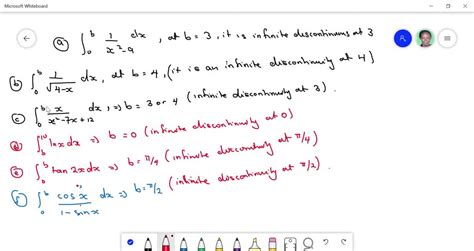 Microsoft Whiteboard
(a) ∫₀ᵇ 1/(x²-9) dx, at b = 3, it is infinite discontinuous at 3
(b) ∫₀ᵇ 1/√(4-x) dx, at b = 4, (it is an infinite discontinuity at 4)
(c) ∫₀ᵇ x/(x²-7x+12) dx, ⇒ b = 3 or 4 (infinite discontinuity at 3).
(d) ∫_b^10 ln x dx ⇒ b = 0 (infinite discontinuity at 0)
(e) ∫₀ᵇ tan 2x dx ⇒ b = π/4 (infinite discontinuity at π/4)
(f) ∫₀ᵇ cos x/(1-sin x) dx ⇒ b = π/2 (infinite discontinuity at π/2).